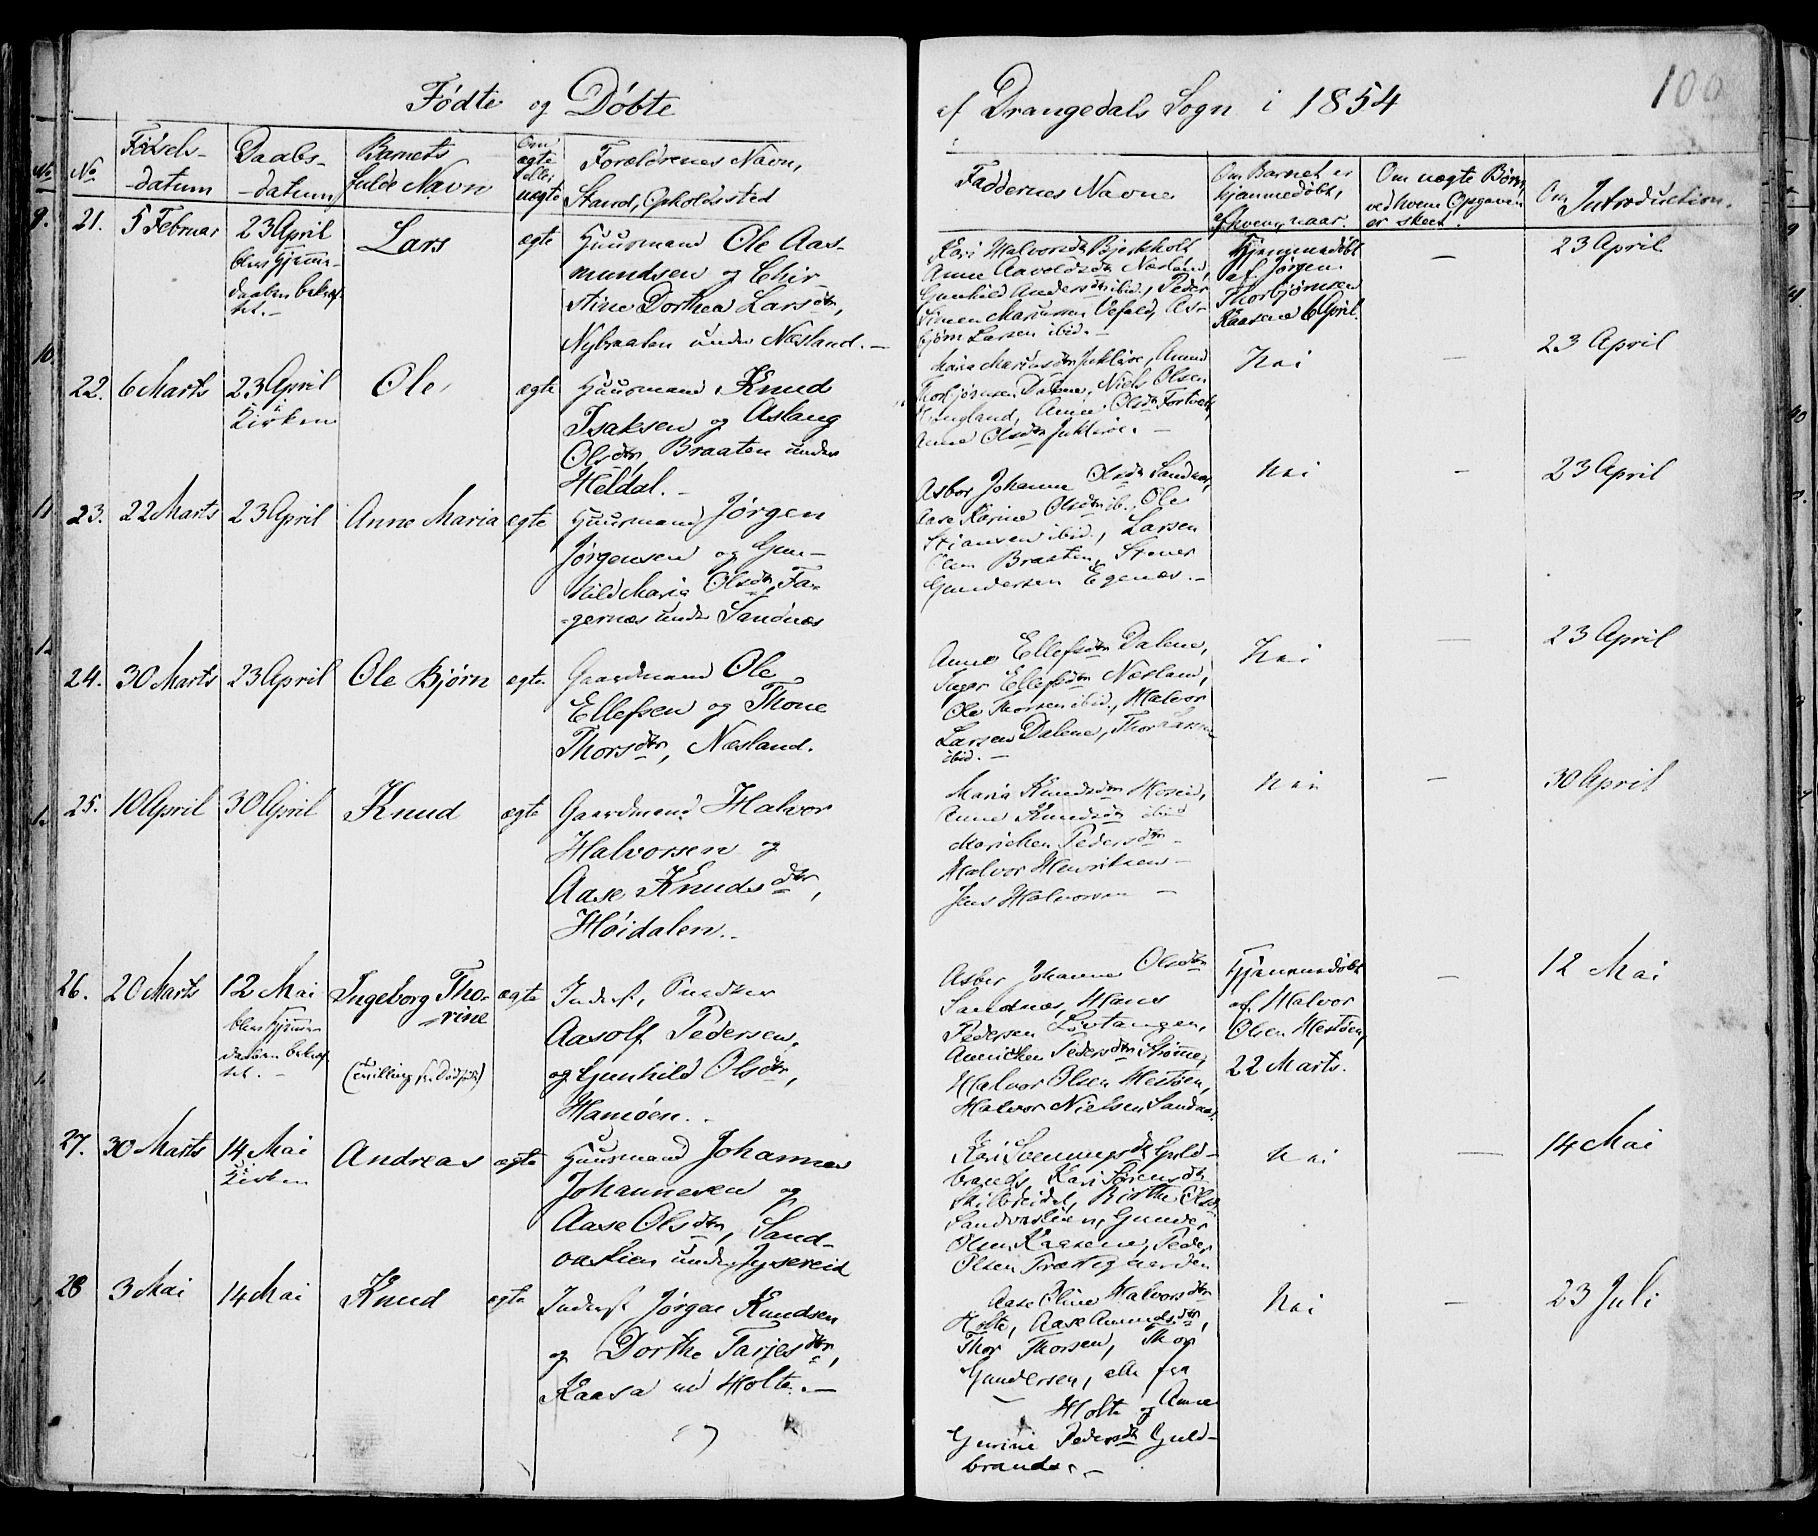 Fødte og Døbte
af Drangedals Sogn i 1854
100
No
Fødsels-
-datum
Daabs-
-datum
Barnets
fulde Navn
Om
ægte
eller
uægte
Forældrenes Navn,
Stand, Opholdssted
Faddernes Navne
Om Barnet er
hjemmedøbt,
af hvem, naar.
Om uægte Børn,
ved hvem Opgaven
er skeet.
Om Introduction.
21.
5 Februar
23 April
blev hjemme-
daaben bekræf-
tet. -
Lars
ægte
Huusmand Ole Aas-
mundsen og Chir-
stine Dorthea Larsdtr,
Nybraaten under Næsland. -
Kari Halvorsdtr Bjerkholt
Anne Aavoldsdtr Næsland,
Gunhild Andersdtr ibid., Peder
Simen Mariussen Vefald, As-
bjørn Larsen ibid. -
Hjemmedøbt
af Jørgen
Thorbjørnsen
Kaasene 6 April.
-
23 April
22.
6 Marts
23 April
i
Kirken
Ole
ægte
Huusmand Knud
Isaksen og Aslaug
Olsdtr, Braaten under
Heldal. -
Thorbjørnsen Dalene, Niels Olsen
Anne Olsdtr
Anne Olsdtr
Nei
-
23 April
23.
22 Marts
23 April
Anne Maria
ægte
Huusmand Jørgen
Jørgensen og Gun-
hild Maria Olsdtr, Fa-
-gernæs under Sandnæs
Asbor Johanne Olsdtr Sandnæs,
Aase Karine Olsdtr ib., Ole
Stiansen ibid., Larsen
Braaten, Stener
Gundersen Egenæs. -
Nei
-
23 April
24.
30 Marts
23 April
Ole Bjørn
ægte
Gaardmand Ole
Ellefsen og Thone
Thorsdtr, Næsland.
Anne Ellefsdtr Dalene,
Inger Ellefsdtr Næsland,
Ole Thorsen ibid., Halvor
Larsen Dalene, Thor Larsen
ibid. -
Nei
-
23 April
25.
10 April
30 April
Knud
ægte
Gaardmand Halvor
Halvorsen og
Aase Knudsdtr,
Høidalen. -
Maria Knudsdtr
Anne Knudsdtr ibid
Marichen Pedersdtr -
Halvor Henriksen -
Jens Halvorsen -
Nei
-
30 April
26.
20 Marts
12 Mai
blev hjemme-
daaben bekræf-
tet. -
Ingeborg Tho-
-rine
(Tvilling)
ægte
Inderst,
Aasolf Pedersen,
og Gunhild Olsdtr,
Hamøen. -
Asber Johanne Olsdtr
Sandnæs, Hans
Pedersen Løvtangen,
Annichen Pedersdtr Strømme,
Halvor Olsen Hestøen,
Halvor Nielsen Sandnæs
Hjemmedøbt
af Halvor
Olsen Hestøen,
22 Marts.
-
12 Mai
27.
30 Marts
14 Mai
i
Kirken
Andreas
ægte
Huusmand Johannes
Johannesen og
Aase Olsdtr, Sand-
vaslien under Gyssereid
Kari Svenningsdtr Guld-
brands, Kari Sørensdtr
Birthe Olsdtr
Sandvaslien, Gunder
Olsen Kaasene, Peder
Olsen Præstegaarden
Nei
-
14 Mai
28
3 Mai
14 Mai
Knud
ægte
Inderst Jørgen Knudsen
og Dorthe Tarjesdtr,
Kaasa un Holte. -
Aase Oline Halvorsdtr
Holte, Aase Amundsdtr,
Thor Thorsen, Thor
Gundersen, alle fra
Holte og Anne
Gurine Pedersdtr Guld-
brands. -
Nei
-
23 Juli